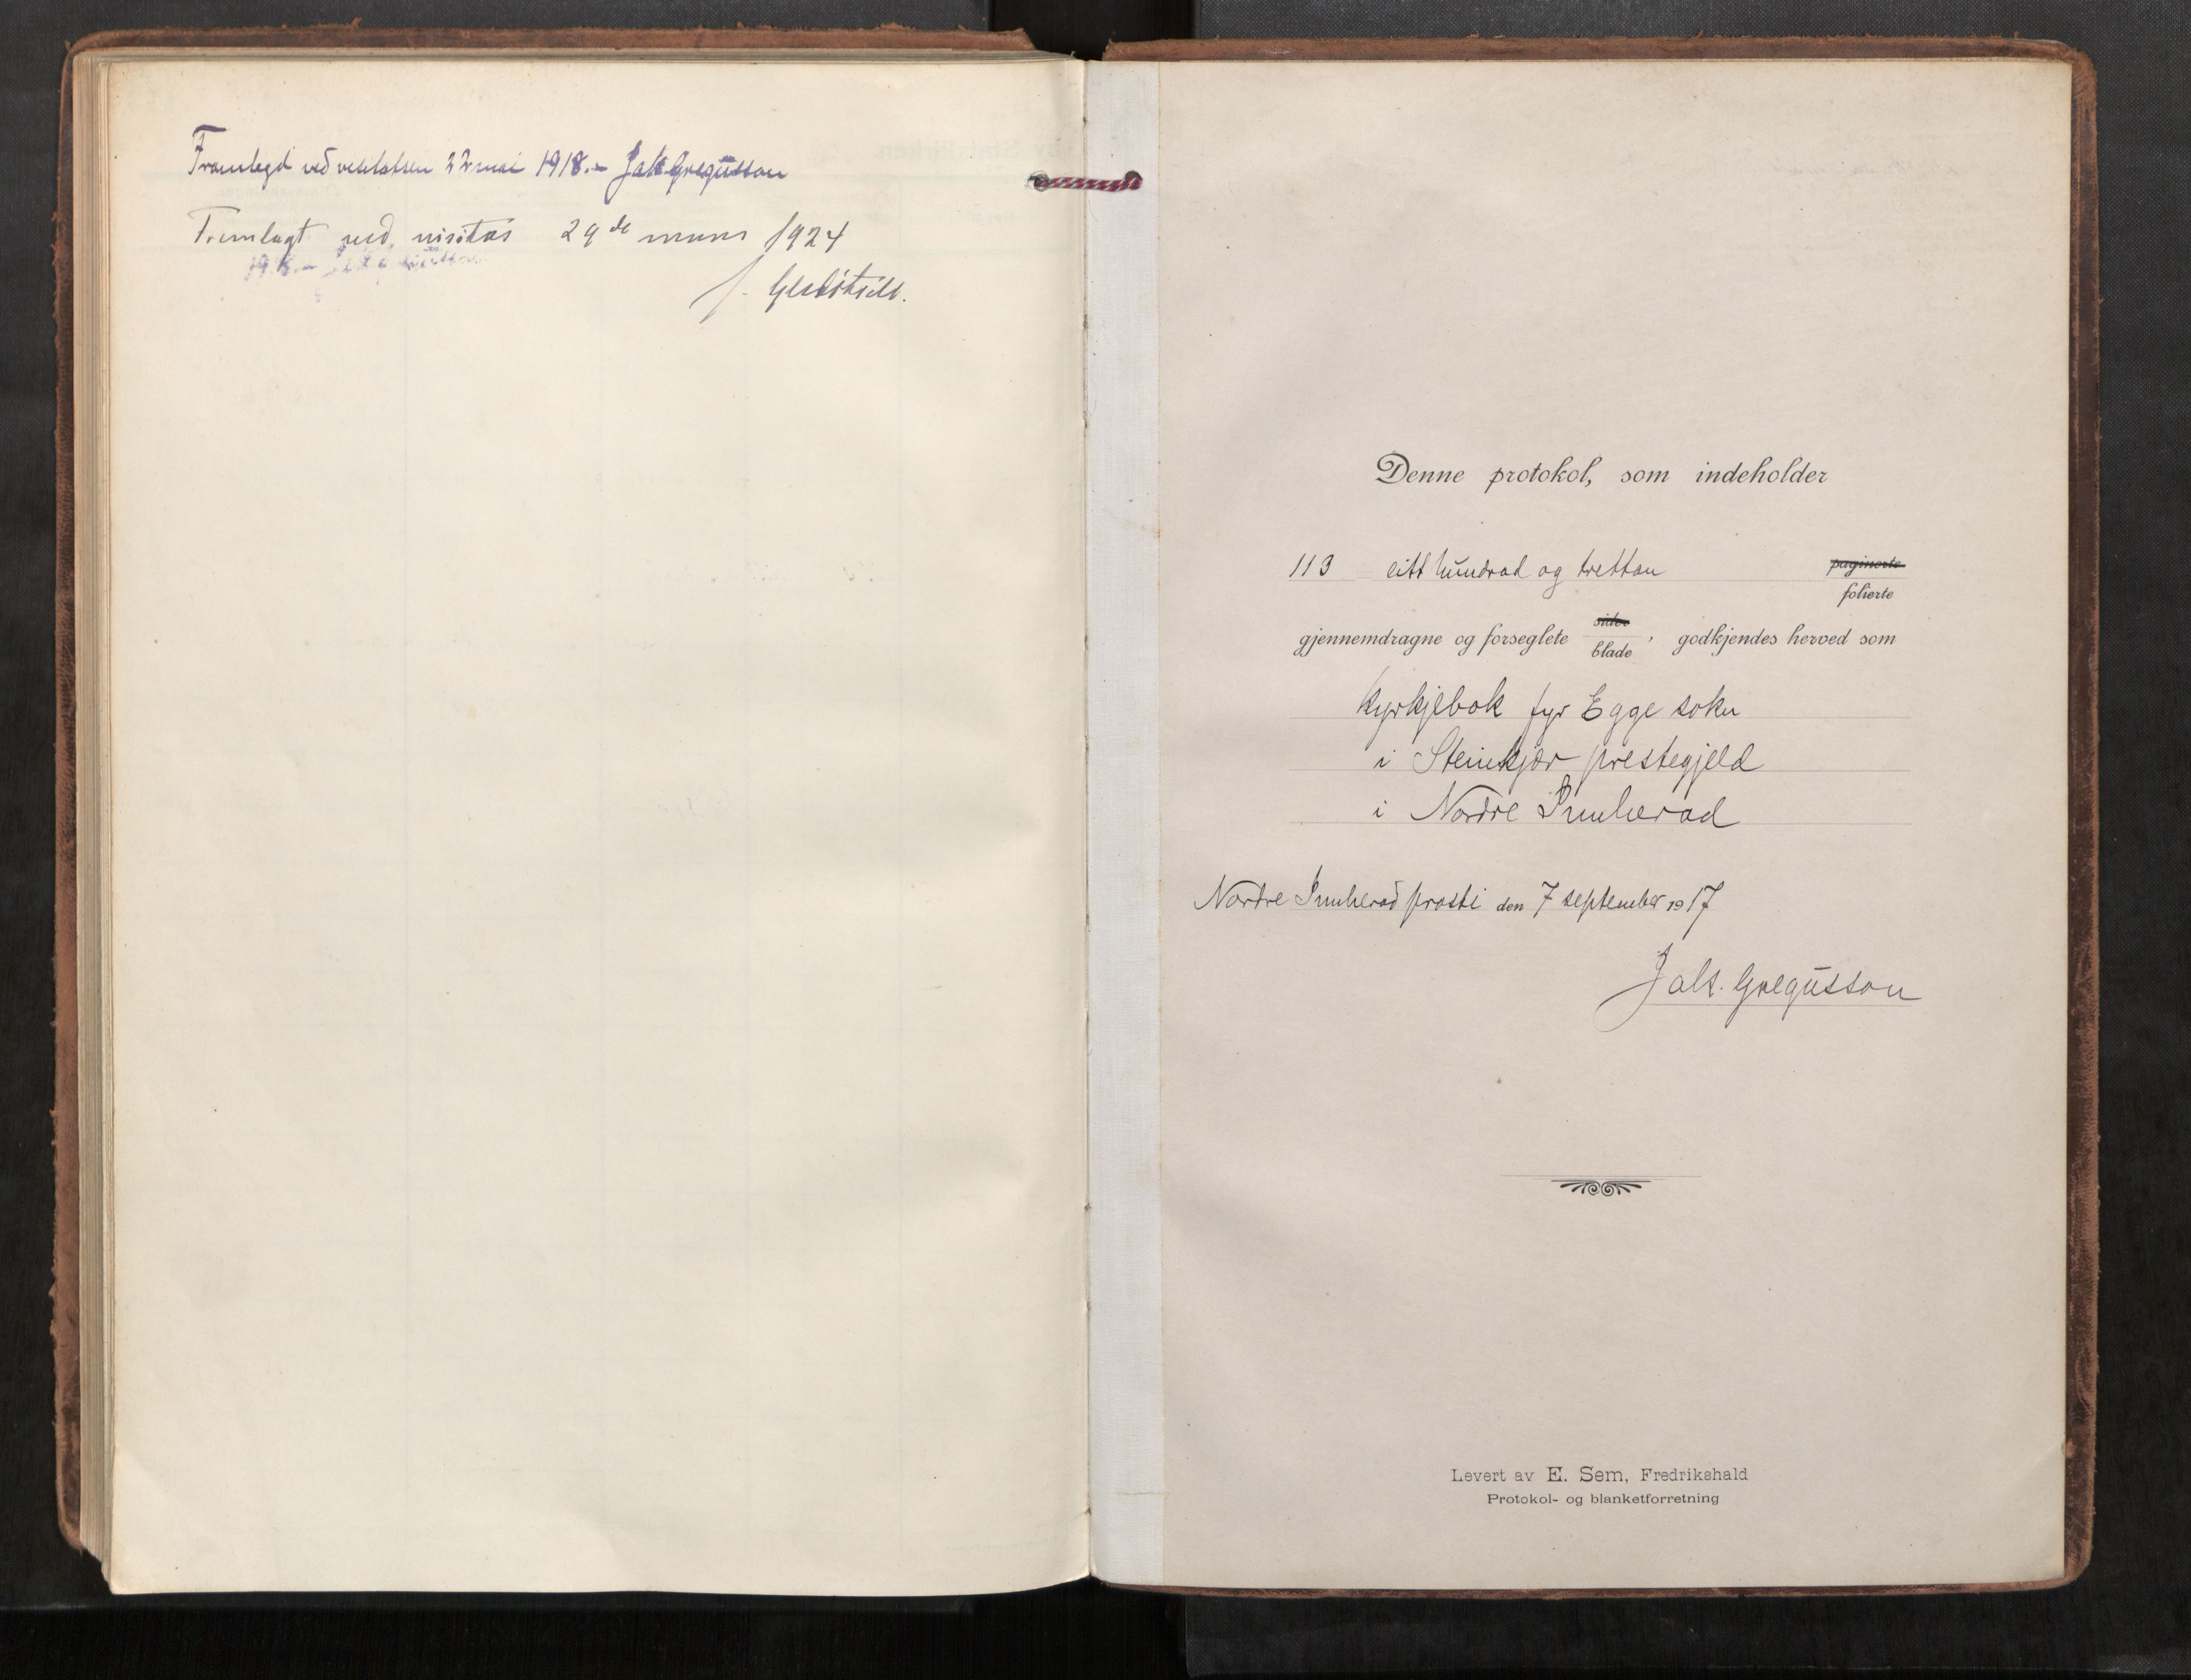 Framlegd ved visitatsen 22 mai 1918. – Jak Gregusson
Fremlagt ved visitas 29de mars 1924
Denne protokol, som indeholder
113 eitt hundrad og trettan paginerte
folierte
gjennemdragne og forseglete sider
blade, godkjendes herved som
kyrkjebok fyr Egge sokn
i Steinkjær prestegjeld
i Nordre Innherad
Nordre Innherad prosti den 7 september 1917
Jak. Gregusson
Levert av E. Sem, Fredrikshald
Protokol- og blanketforretning